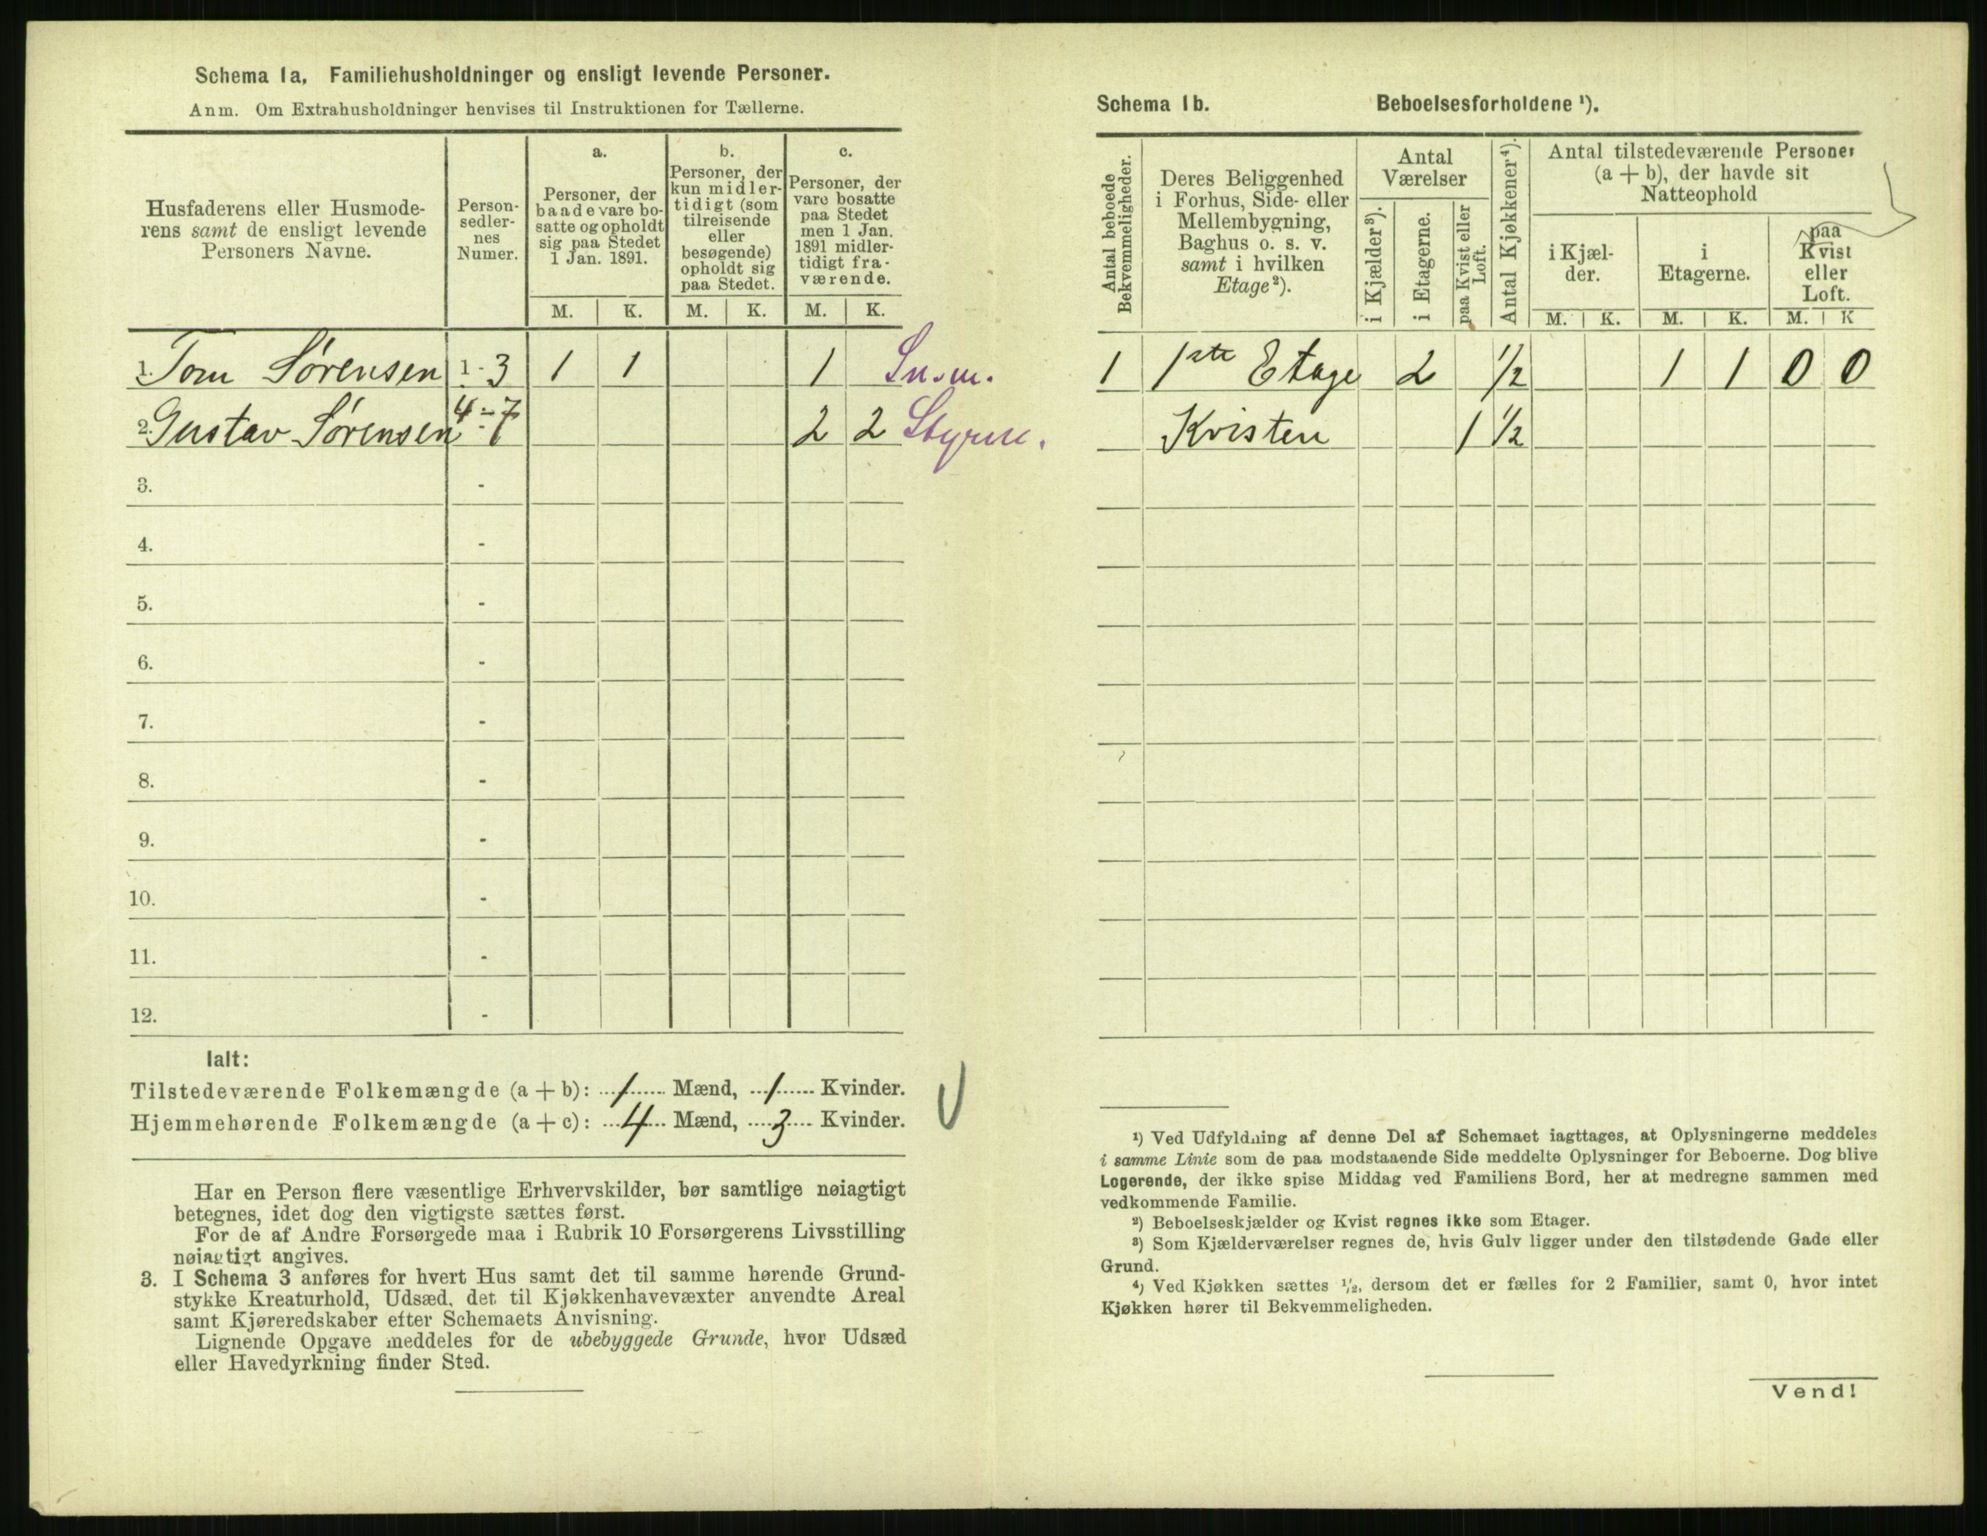 Schema 1a. Familiehusholdninger og ensligt levende Personer.
Anm. Om Extrahusholdninger henvises til Instruktionen for Tællerne.
Husfaderens eller Husmode-
rens samt de ensligt levende
Personers Navne.
Person-
sedler-
nes
Numer.
a.
Personer, der
baade vare bo-
satte og opholdt
sig paa Stedet
1 Jan. 1891.
b.
Personer, der
kun midler-
tidigt (som
tilreisende
eller
besøgende)
opholdt sig
paa Stedet.
c.
Personer, der
vare bosatte
paa Stedet
men 1 Jan.
1891 midler-
tidigt fra-
værende.
M. K. M. K. M. K.
1. Tom Sørensen 1 - 3 1 1 1
2. Gustav Sørensen 4 - 7 2 2
3. -
4. -
5. -
6. -
7. -
8. -
9. -
10. -
11. -
12. -
Ialt:
Tilstedeværende Folkemængde (a + b): 1 Mænd, 1 Kvinder.
Hjemmehørende Folkemængde (a + c): 4 Mænd, 3 Kvinder.
Har en Person flere væsentlige Erhvervskilder, bør samtlige nøiagtigt
betegnes, idet dog den vigtigste sættes først.
For de af Andre Forsørgede maa i Rubrik 10 Forsørgerens Livsstilling
nøiagtigt angives.
3. I Schema 3 anføres for hvert Hus samt det til samme hørende Grund-
stykke Kreaturhold, Udsæd, det til Kjøkkenhavevæxter anvendte Areal
samt Kjøreredskaber efter Schemaets Anvisning.
Lignende Opgave meddeles for de ubebyggede Grunde, hvor Udsæd
eller Havedyrkning finder Sted.
Schema 1b. Beboelsesforholdene ¹).
Antal beboede
Bekvemmeligheder.
Deres Beliggenhed
i Forhus, Side- eller
Mellembygning,
Baghus o. s. v.
samt i hvilken
Etage²).
Antal
Værelser
i Kjælder³).
i Etagerne.
paa Kvist eller
Loft.
Antal Kjøkkener⁴).
Antal tilstedeværende Personer
(a + b), der havde sit
Natteophold
i Kjæl-
der.
i
Etagerne.
paa
Kvist
eller
Loft.
M. K. M. K. M. K
1 1ste Etage 2 1/2 1 1 0 0
Kvisten 1 1/2
¹) Ved Udfyldning af denne Del af Schemaet iagttages, at Oplysningerne meddeles
i samme Linie som de paa modstaaende Side meddelte Oplysninger for Beboerne. Dog blive
Logerende, der ikke spise Middag ved Familiens Bord, her at medregne sammen med
vedkommende Familie.
²) Beboelseskjælder og Kvist regnes ikke som Etager.
³) Som Kjælderværelser regnes de, hvis Gulv ligger under den tilstødende Gade eller
Grund.
⁴) Ved Kjøkken sættes ½, dersom det er fælles for 2 Familier, samt 0, hvor intet
Kjøkken hører til Bekvemmeligheden.
Vend!